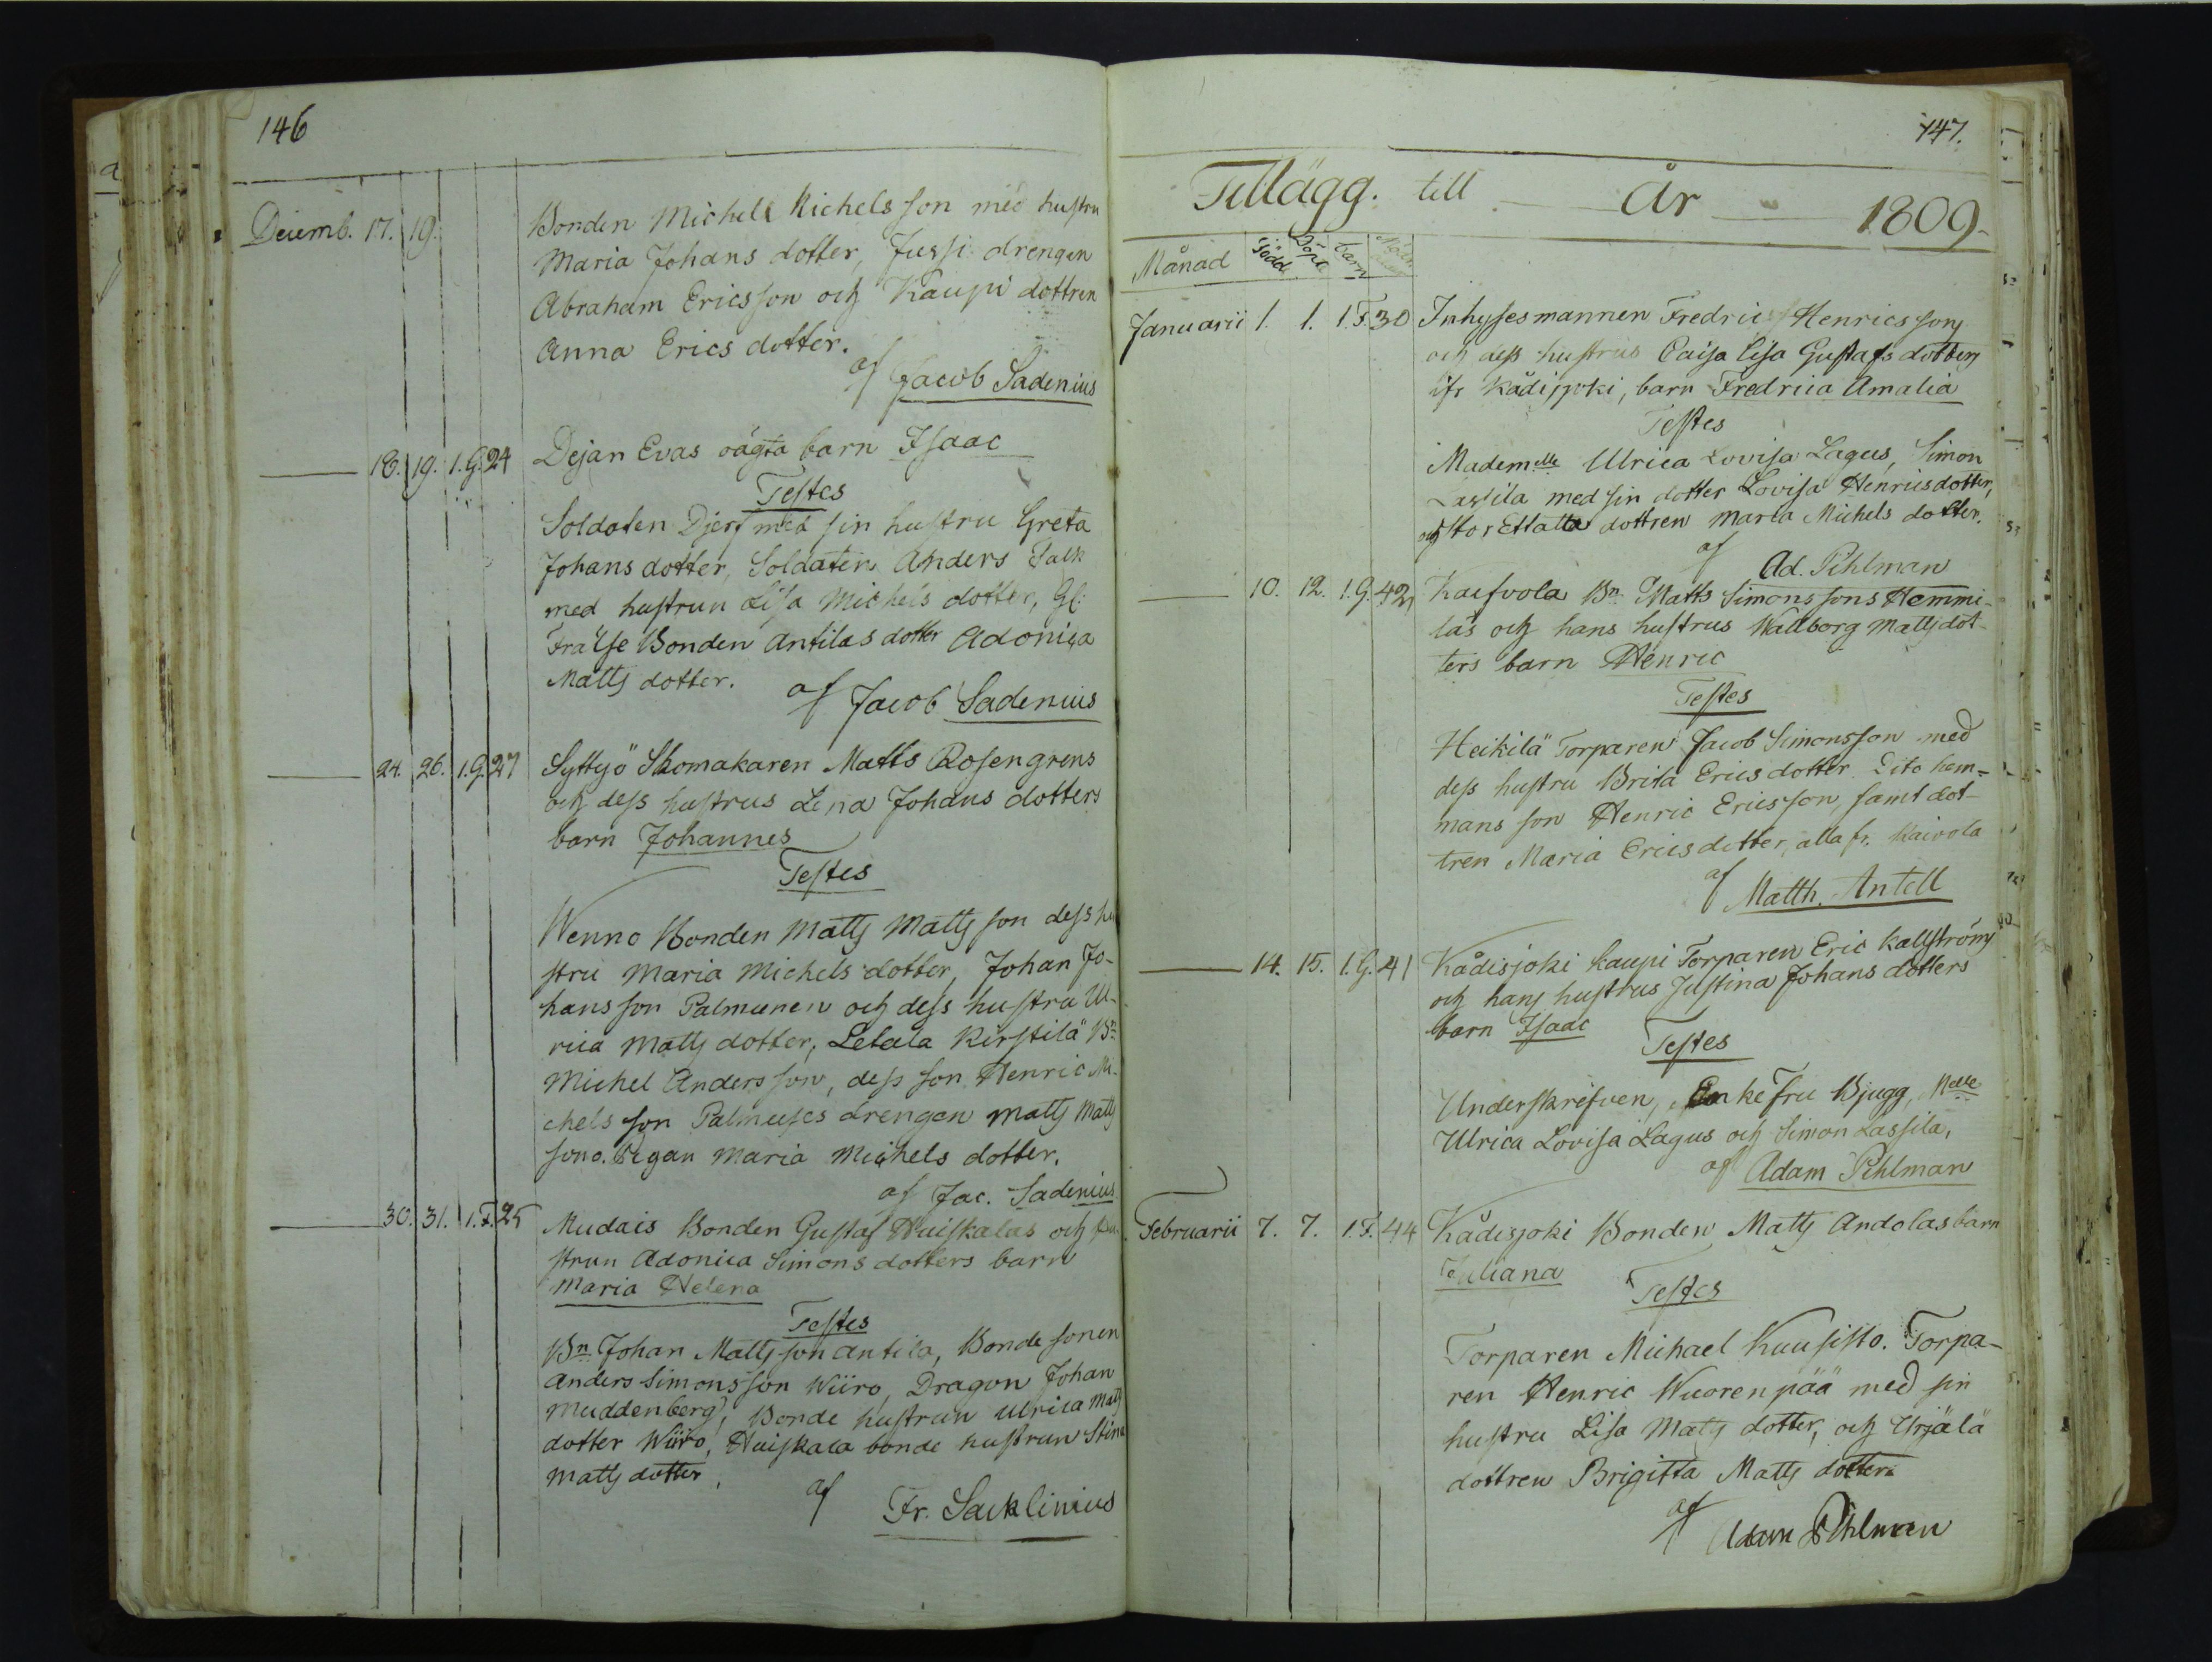 146
Deiemb. 17. 19. Bonden Michell Michels son med hustru
Maria Johans dotter, Jussi drengen
Abraham Ericsson och Kaupi dottren
Anna Erics dotter.
af Jacob Sadenius
18. 19. 1.G. 24 Pejan Evas oägta barn Isaac
Testes
Soldaten Djerf med sin hustru Greta
Johans dotter, Soldaten Anders Falk
med hustrun Lisa Michels dotter, Gl:
Frälse Bonden Antilas dotter Adonica
Matts dotter.
af Jacob Sadenius
24. 26. 1.G. 27 Syttyö Skomakaren Matts Rosengrens
och dess hustrus Lena Johans dotters
barn Johannes
Testes
Wenno Bonden Matts Matts son dess hu
stru Maria Michels dotter, Johan Jo-
hans son Palmunen och dess hustru Ul-
rica Matts dotter, Letala Kirstilä Bn
Michel Andersson, dess son Henric Mi-
chels son Palmuses drengen Matts Matts
son o. Pigan Maria Michels dotter.
af Jac. Sadenius
30. 31. 1.F. 25 Mudais Bonden Gustaf Huiskalas och hu
strun Adonica Simons dotters barn
Maria Helena
Testes
Bn Johan Matts son Antila, Bonde sonen
Anders Simonsson Wiiro, Dragon Johan
Muddenberg, Bonde hustrun Ulrica Matts
dotter Wiiro, Huiskala bonde hustrun Stina
Matts dotter,
af
Fr. Sacklinius
147.
Tillägg. till År 1809.
Månad Född Döpt barn
Januarii 1. 1. 1.F. 30 Inhysesmannen Fredric Henricssons
och dess hustrus Caisa Lisa Gustafs dotters
ifr Kådisjoki, barn Fredrica Amalia
Testes
Madem:lle Ulrica Lovisa Lagus, Simon
Lassila med sin dotter Lovisa Henricsdotter,
och Stor Ettala dottren Maria Michels dotter.
af
Ad. Pihlman
10. 12. 1.G. 42 Kaifvola Bn Matts Simons sons Hemmi-
läs och hans hustrus Wallborg Matts dot-
ters barn Henric
Testes
Heikilä Torparen Jacob Simonsson med
dess hustru Brita Erics dotter Dito hem-
mans son Henric Ericsson, samt dot-
tren Maria Ericsdotter, alla fr. Kaivola
af
Matth. Antell
14. 15. 1.G. 41 Kådisjoki Kaupi Torparen Eric Kallströms
och hans hustrus Justina Johans dotters
barn Isaac
Testes
Underskrefven, Enke Fru Bjugg, Melle
Ulrica Lovisa Lagus och Simon Lassila.
af Adam Pihlman
Februarii 7. 7. 1.F. 44 Kådisjoki Bonden Matts Andolas barn
Juliana
Testes
Torparen Michael Kuusisto. Torpa-
ren Henric Wuorenpää med sin
hustru Lisa Matts dotter, och Urjälä
dottren Brigitta Matts dotter.
af
Adam Pihlman